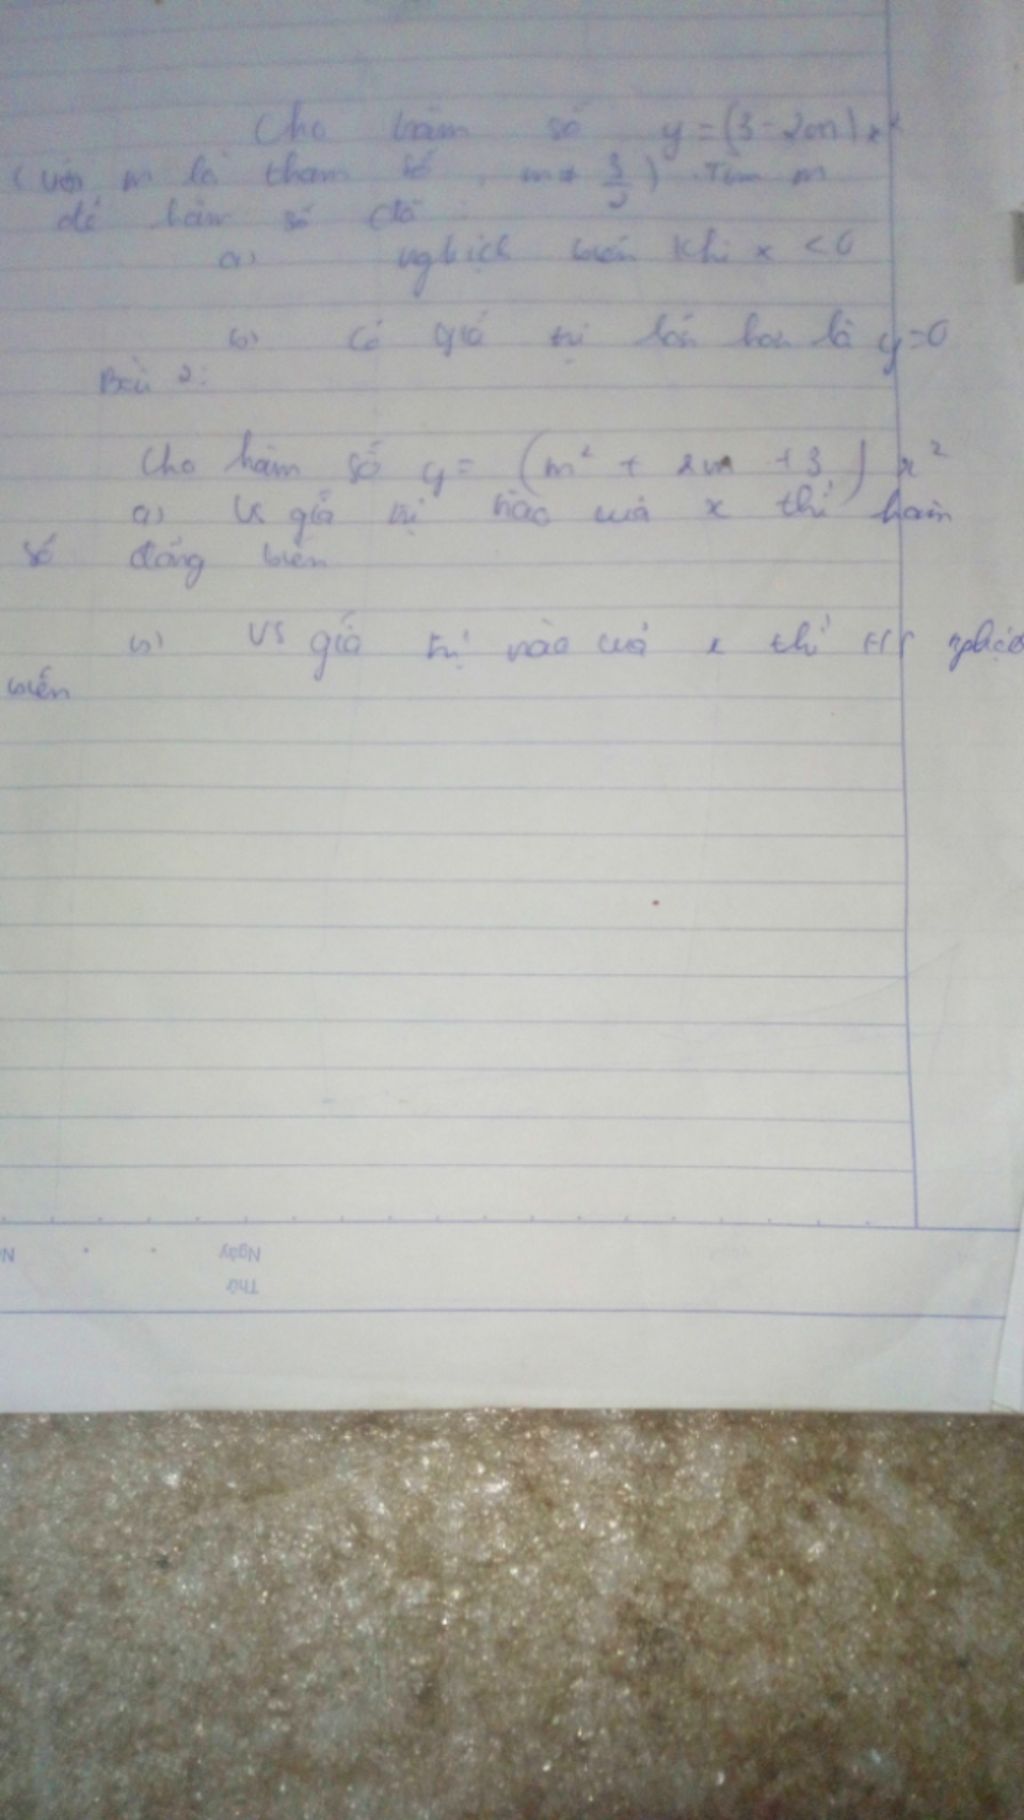 Cho hàm số y = (3 - 2m) x²
(với m là tham số, m ≠ 3/2). Tìm m
để hàm số đã
a) nghịch biến khi x < 0
b) có giá trị lớn hơn là y = 0
Bài 2:
Cho hàm số y = (m² + 2m + 3) x²
a) Vs giá trị nào của x thì hàm
số đồng biến
b) Vs giá trị nào của x thì HS nghịch
biến
Ngày
Thứ